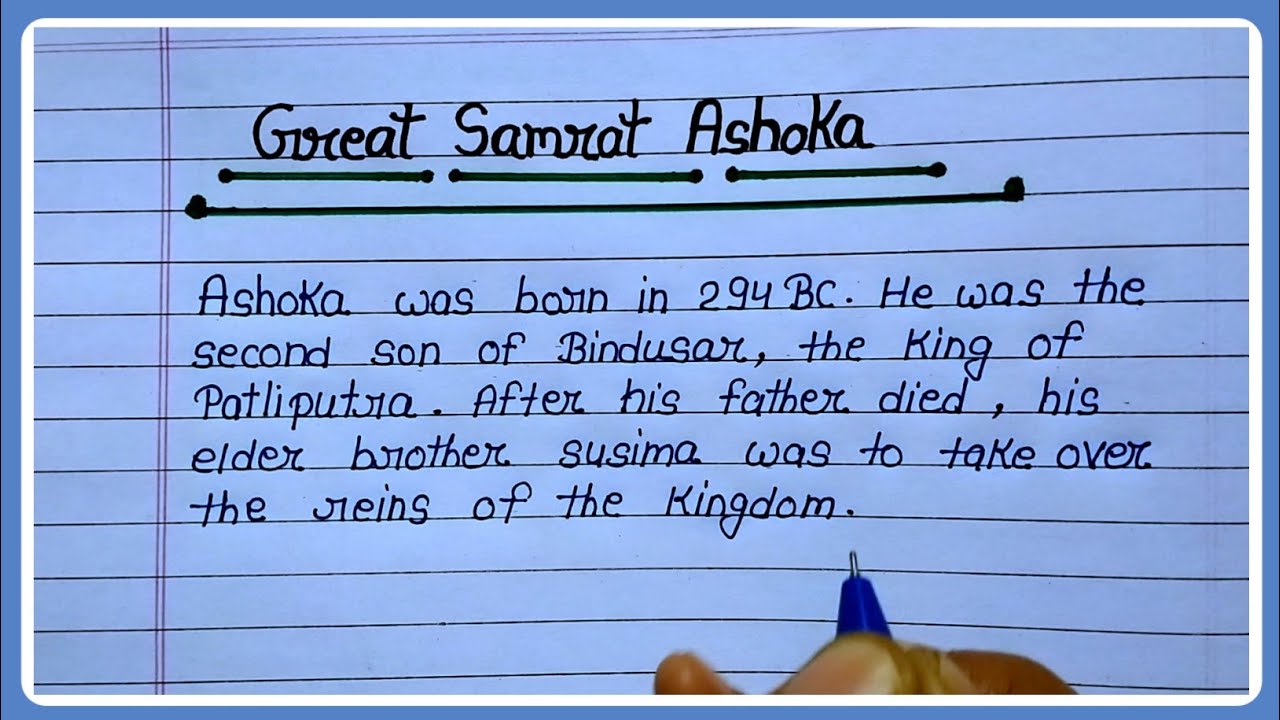 Great Samrat Ashoka
Ashoka was born in 294 BC. He was the
second son of Bindusar, the King of
Patliputra. After his father died, his
elder brother susima was to take over
the reins of the Kingdom.